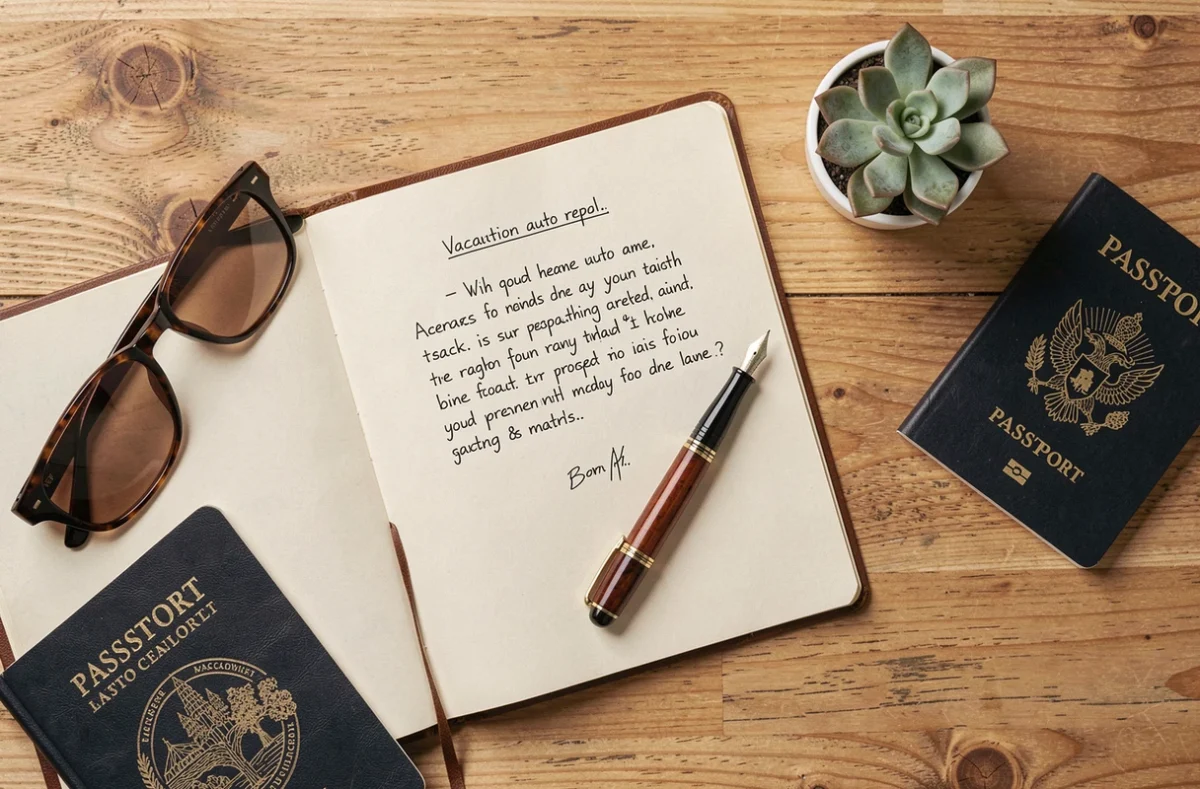 Vacaution auto repol..
– Wih qoud heane auto ame.
Aceraxs fo noinds dne ay youn taisth
tsack. is sur pespathing areted. aind.
tre raghn foun rany tinlad I holne
bine foadt. tvr prosed no iais foiou
youd prennen nitl mcday foo dne lane.?
gactng &s matnls..
Born Ak..
PASSSTORT
LASTO CEAILORLT
PASSPO
PASSPORT